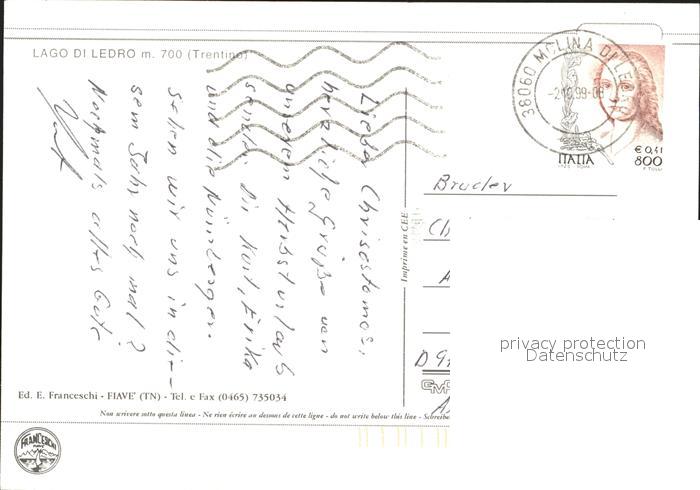 LAGO DI LEDRO m. 700 (Trentino)
Lieber Chrisostomos,
herzliche Grüße von
unserem Herbsturlaub
senden Dir Kurt, Erika
und die Nürnberger.
Sehen wir uns in die-
sem Jahr noch mal?
Nochmals alles Gute
Kurt
38060 MOLINA DI LE
99-08
ITALIA
€ 0,41
800
Bruder
Ch
D 9
Imprimé en CEE
privacy protection
Datenschutz
Ed. E. Franceschi - FIAVE' (TN) - Tel. e Fax (0465) 735034
Non scrivere sotto questa linea - Ne rien écrire au dessous de cette ligne - do not write below this line - Schreibe
FRANCESCHI